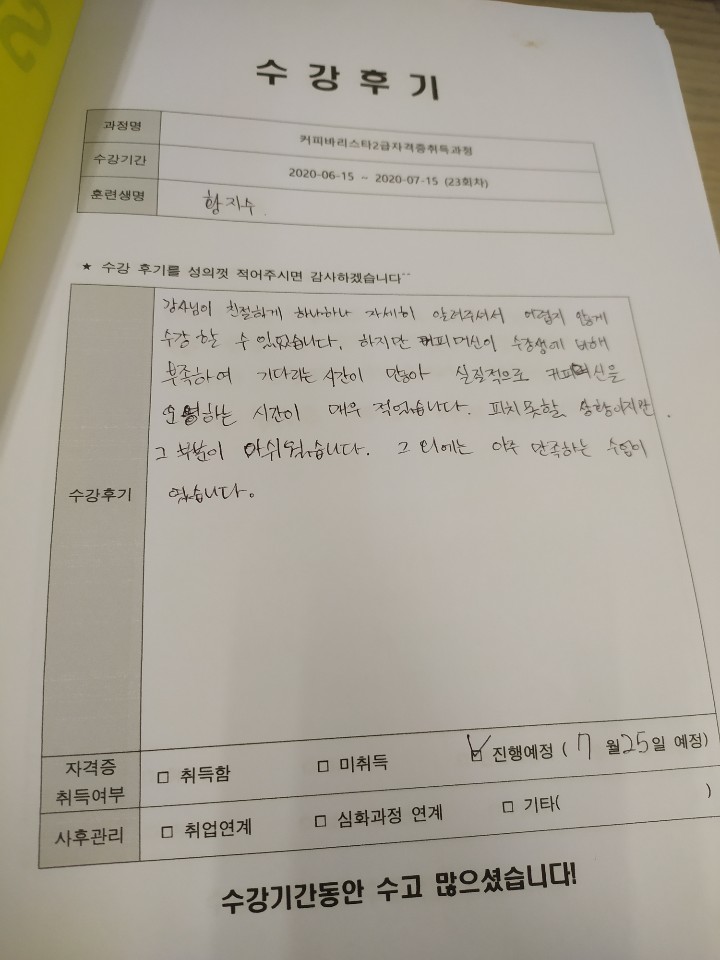 수 강 후 기
과정명 커피바리스타2급자격증취득과정
수강기간 2020-06-15 ~ 2020-07-15 (23회차)
훈련생명 황지수
★ 수강 후기를 성의껏 적어주시면 감사하겠습니다^^
강사님이 친절하게 하나하나 자세히 알려주셔서 어렵지 않게
수강 할 수 있었습니다. 하지만 커피머신이 수강생에 비해
부족하여 기다리는 시간이 많아 실질적으로 커피머신을
운영하는 시간이 매우 적었습니다. 피치못할 상황이지만
그 부분이 아쉬웠습니다. 그 외에는 아주 만족하는 수업이
수강후기
었습니다.
자격증
취득여부
□ 취득함 □ 미취득 ☑ 진행예정 ( 7 월 25일 예정)
사후관리 □ 취업연계 □ 심화과정 연계 □ 기타( )
수강기간동안 수고 많으셨습니다!